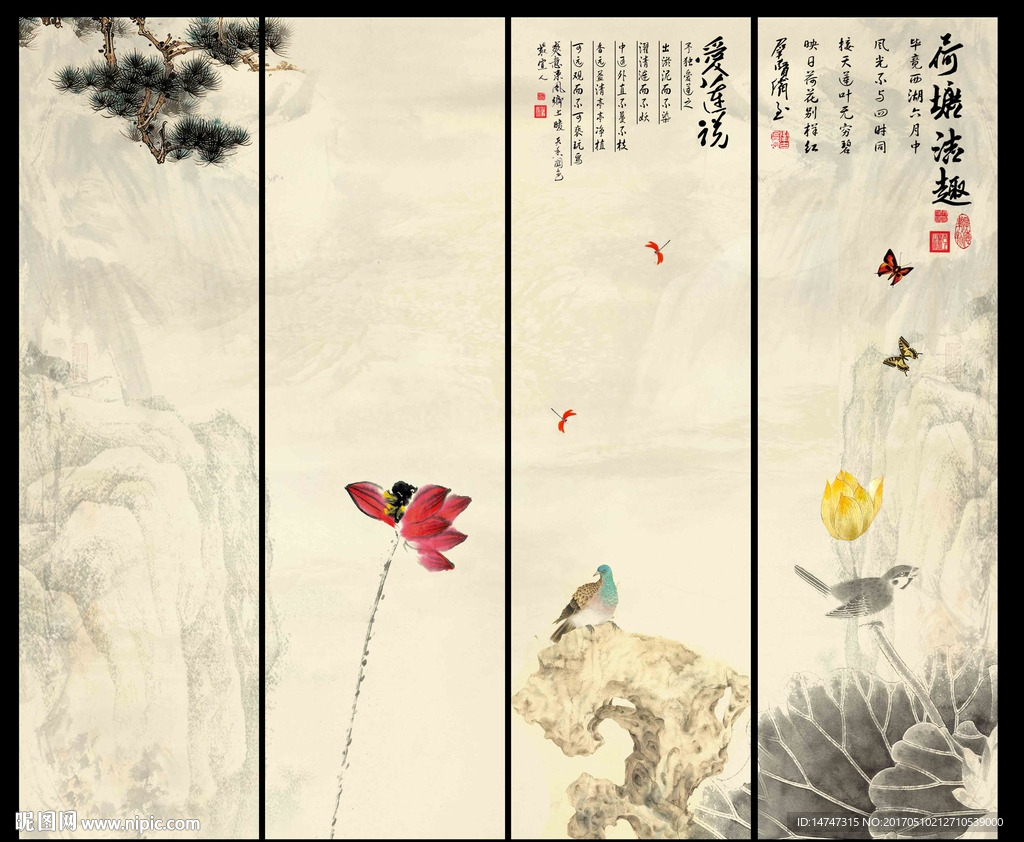 荷塘清趣
毕竟西湖六月中
风光不与四时同
接天莲叶无穷碧
映日荷花别样红
愛莲说
予独爱莲之
出淤泥而不染
濯清涟而不妖
中通外直不蔓不枝
香远益清亭亭净植
可远观而不可亵玩焉
昵图网 www.nipic.com
ID:14747315 NO:20170510212710539000